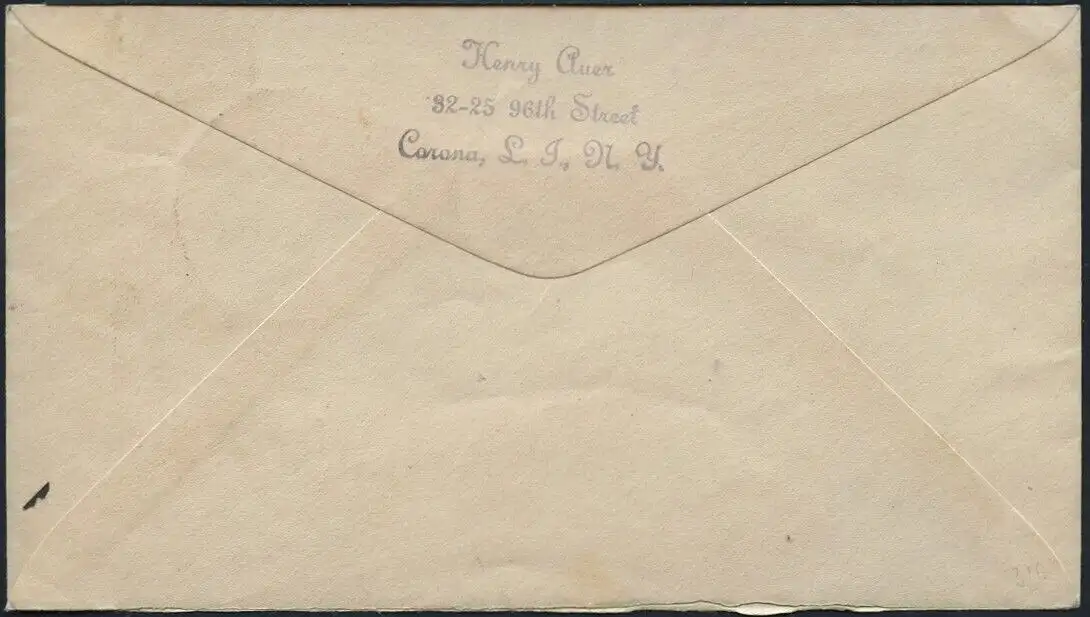 Henry Auer
32-25 96th Street
Corona, L. I., N. Y.